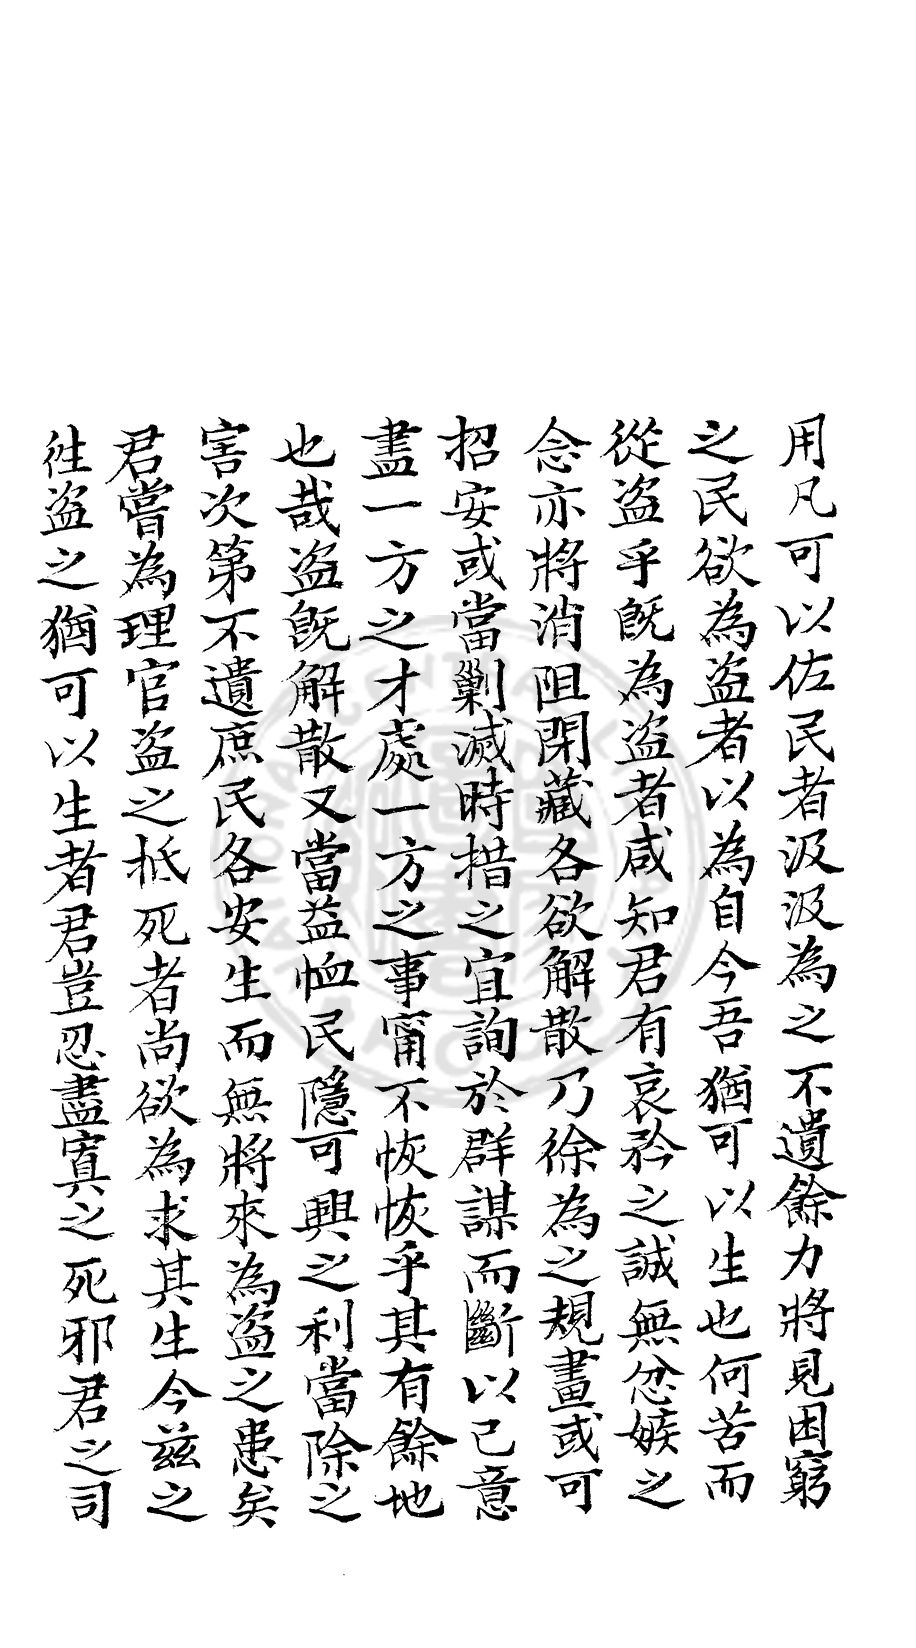 用凡可以佐民者汲汲為之不遺餘力將見困窮
之民欲為盜者以為自今吾猶可以生也何苦而
從盜乎既為盜者咸知君有哀矜之誠無忿嫉之
念亦將消阻閉藏各欲解散乃徐為之規畫或可
招安或當剿滅時措之宜詢於群謀而斷以己意
盡一方之才處一方之事甯不恢恢乎其有餘地
也哉盜既解散又當益恤民隱可興之利當除之
害次第不遺庶民各安生而無將來為盜之患矣
君嘗為理官盜之抵死者尚欲為求其生今茲之
徃盜之猶可以生者君豈忍盡寘之死邪君之司